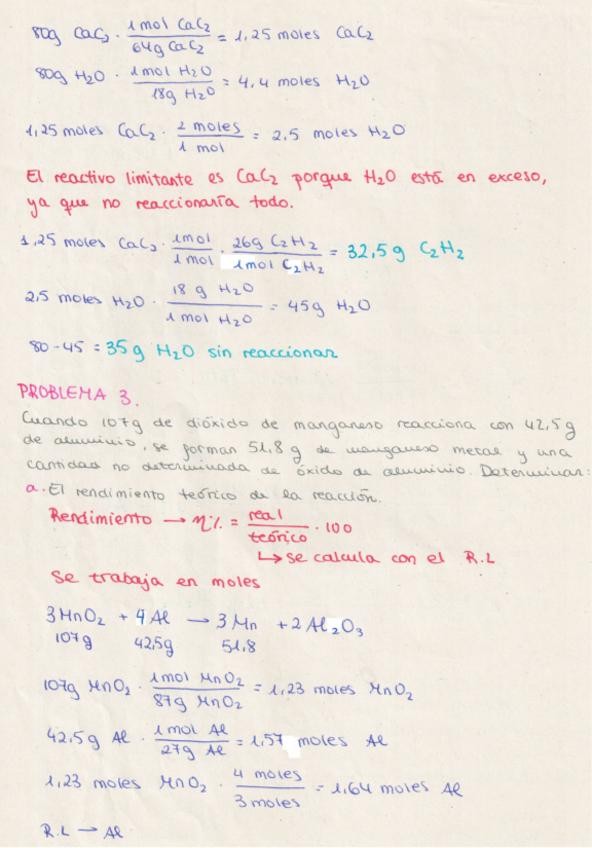 80g CaC₂ · 1 mol CaC₂ / 64g CaC₂ = 1,25 moles CaC₂
80g H₂O · 1 mol H₂O / 18g H₂O = 4,4 moles H₂O
1,25 moles CaC₂ · 2 moles / 1 mol = 2,5 moles H₂O
El reactivo limitante es CaC₂ porque H₂O está en exceso,
ya que no reaccionaría todo.
1,25 moles CaC₂ · 1mol / 1 mol · 26g C₂H₂ / 1mol C₂H₂ = 32,5 g C₂H₂
2,5 moles H₂O · 18 g H₂O / 1 mol H₂O = 45g H₂O
80-45 = 35g H₂O sin reaccionar
PROBLEMA 3.
Cuando 107g de dióxido de manganeso reacciona con 42,5g
de aluminio, se forman 51,8 g de manganeso metal y una
cantidad no determinada de óxido de aluminio. Determinar:
a. El rendimiento teórico de la reacción.
Rendimiento → η% = real / teórico · 100
↳ se calcula con el R.L
Se trabaja en moles
3MnO₂ + 4Al → 3Mn + 2Al₂O₃
107g 42,5g 51,8
107g MnO₂ · 1mol MnO₂ / 87g MnO₂ = 1,23 moles MnO₂
42,5g Al · 1 mol Al / 27g Al = 1,57 moles Al
1,23 moles MnO₂ · 4 moles / 3 moles = 1,64 moles Al
R.L → Al